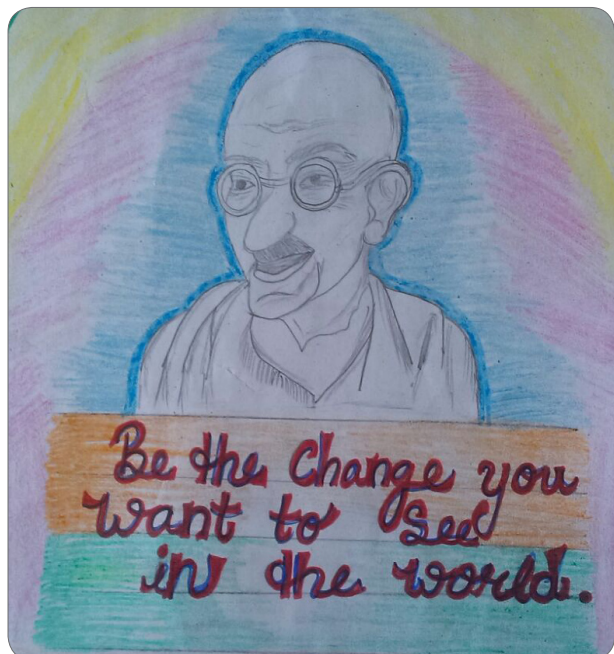 Be the Change you
want to See
in the world.